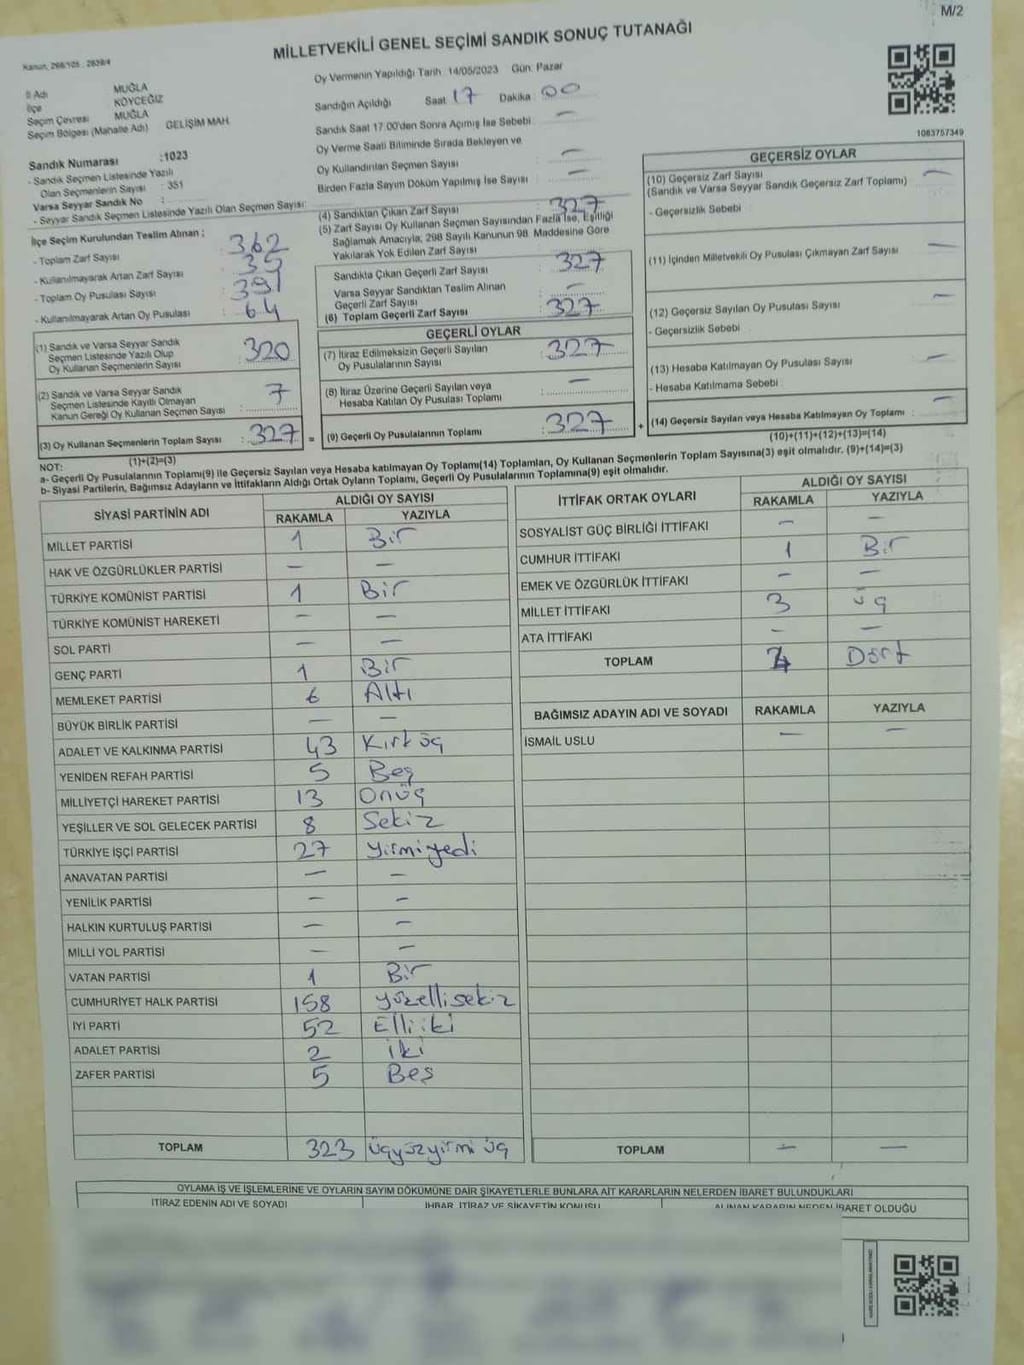 M/2
MİLLETVEKİLİ GENEL SEÇİMİ SANDIK SONUÇ TUTANAĞI
Kanun, 298/105 . 2839/4
Oy Vermenin Yapıldığı Tarih 14/05/2023 Gün: Pazar
İl Adı MUĞLA
İlçe KÖYCEĞİZ
Seçim Çevresi MUĞLA
Seçim Bölgesi (Mahalle Adı) GELİŞİM MAH.
Sandığın Açıldığı Saat 17 Dakika 00
Sandık Saat 17.00'den Sonra Açımış İse Sebebi —
Oy Verme Saati Bitiminde Sırada Bekleyen ve
Oy Kullandırılan Seçmen Sayısı —
Birden Fazla Sayım Döküm Yapılmış İse Sayısı —
1083757349
Sandık Numarası :1023
- Sandık Seçmen Listesinde Yazılı
Olan Seçmenlerin Sayısı : 351
Varsa Seyyar Sandık No :
- Seyyar Sandık Seçmen Listesinde Yazılı Olan Seçmen Sayısı:
İlçe Seçim Kurulundan Teslim Alınan ;
- Toplam Zarf Sayısı 362
- Kullanılmayarak Artan Zarf Sayısı 35
- Toplam Oy Pusulası Sayısı 391
- Kullanılmayarak Artan Oy Pusulası 64
(1) Sandık ve Varsa Seyyar Sandık
Seçmen Listesinde Yazılı Olup
Oy Kullanan Seçmenlerin Sayısı 320
(2) Sandık ve Varsa Seyyar Sandık
Seçmen Listesinde Kayıtlı Olmayan
Kanun Gereği Oy Kullanan Seçmen Sayısı 7
(3) Oy Kullanan Seçmenlerin Toplam Sayısı : 327 =
(1)+(2)=(3)
(4) Sandıktan Çıkan Zarf Sayısı 327
(5) Zarf Sayısı Oy Kullanan Seçmen Sayısından Fazla İse, Eşitliği
Sağlamak Amacıyla, 298 Sayılı Kanunun 98. Maddesine Göre
Yakılarak Yok Edilen Zarf Sayısı
Sandıkta Çıkan Geçerli Zarf Sayısı 327
Varsa Seyyar Sandıktan Teslim Alınan
Geçerli Zarf Sayısı —
(6) Toplam Geçerli Zarf Sayısı 327
GEÇERLİ OYLAR
(7) İtiraz Edilmeksizin Geçerli Sayılan
Oy Pusulalarının Sayısı 327
(8) İtiraz Üzerine Geçerli Sayılan veya
Hesaba Katılan Oy Pusulası Toplamı —
(9) Geçerli Oy Pusulalarının Toplamı : 327 +
GEÇERSİZ OYLAR
(10) Geçersiz Zarf Sayısı —
(Sandık ve Varsa Seyyar Sandık Geçersiz Zarf Toplamı)
- Geçersizlik Sebebi
(11) İçinden Milletvekili Oy Pusulası Çıkmayan Zarf Sayısı —
(12) Geçersiz Sayılan Oy Pusulası Sayısı —
- Geçersizlik Sebebi
(13) Hesaba Katılmayan Oy Pusulası Sayısı —
- Hesaba Katılmama Sebebi
(14) Geçersiz Sayılan veya Hesaba Katılmayan Oy Toplamı : —
(10)+(11)+(12)+(13)=(14)
NOT:
a- Geçerli Oy Pusulalarının Toplamı(9) ile Geçersiz Sayılan veya Hesaba katılmayan Oy Toplamı(14) Toplamları, Oy Kullanan Seçmenlerin Toplam Sayısına(3) eşit olmalıdır. (9)+(14)=(3)
b- Siyasi Partilerin, Bağımsız Adayların ve İttifakların Aldığı Ortak Oyların Toplamı, Geçerli Oy Pusulalarının Toplamına(9) eşit olmalıdır.
SİYASİ PARTİNİN ADI ALDIĞI OY SAYISI
RAKAMLA YAZIYLA
MİLLET PARTİSİ 1 Bir
HAK VE ÖZGÜRLÜKLER PARTİSİ — —
TÜRKİYE KOMÜNİST PARTİSİ 1 Bir
TÜRKİYE KOMÜNİST HAREKETİ — —
SOL PARTİ — —
GENÇ PARTİ 1 Bir
MEMLEKET PARTİSİ 6 Altı
BÜYÜK BİRLİK PARTİSİ — —
ADALET VE KALKINMA PARTİSİ 43 Kırk üç
YENİDEN REFAH PARTİSİ 5 Beş
MİLLİYETÇİ HAREKET PARTİSİ 13 Onüç
YEŞİLLER VE SOL GELECEK PARTİSİ 8 Sekiz
TÜRKİYE İŞÇİ PARTİSİ 27 Yirmiyedi
ANAVATAN PARTİSİ — —
YENİLİK PARTİSİ — —
HALKIN KURTULUŞ PARTİSİ — —
MİLLİ YOL PARTİSİ — —
VATAN PARTİSİ 1 Bir
CUMHURİYET HALK PARTİSİ 158 Yüzellisekiz
İYİ PARTİ 52 Elliiki
ADALET PARTİSİ 2 iki
ZAFER PARTİSİ 5 Beş
TOPLAM 323 üçyüzyirmi üç
İTTİFAK ORTAK OYLARI ALDIĞI OY SAYISI
RAKAMLA YAZIYLA
SOSYALİST GÜÇ BİRLİĞİ İTTİFAKI — —
CUMHUR İTTİFAKI 1 Bir
EMEK VE ÖZGÜRLÜK İTTİFAKI — —
MİLLET İTTİFAKI 3 üç
ATA İTTİFAKI — —
TOPLAM 4 Dört
BAĞIMSIZ ADAYIN ADI VE SOYADI RAKAMLA YAZIYLA
İSMAİL USLU — —
TOPLAM — —
OYLAMA İŞ VE İŞLEMLERİNE VE OYLARIN SAYIM DÖKÜMÜNE DAİR ŞİKAYETLERLE BUNLARA AİT KARARLARIN NELERDEN İBARET BULUNDUKLARI
İTİRAZ EDENİN ADI VE SOYADI İHBAR, İTİRAZ VE ŞİKAYETİN KONUSU ALINAN KARARIN NEDEN İBARET OLDUĞU